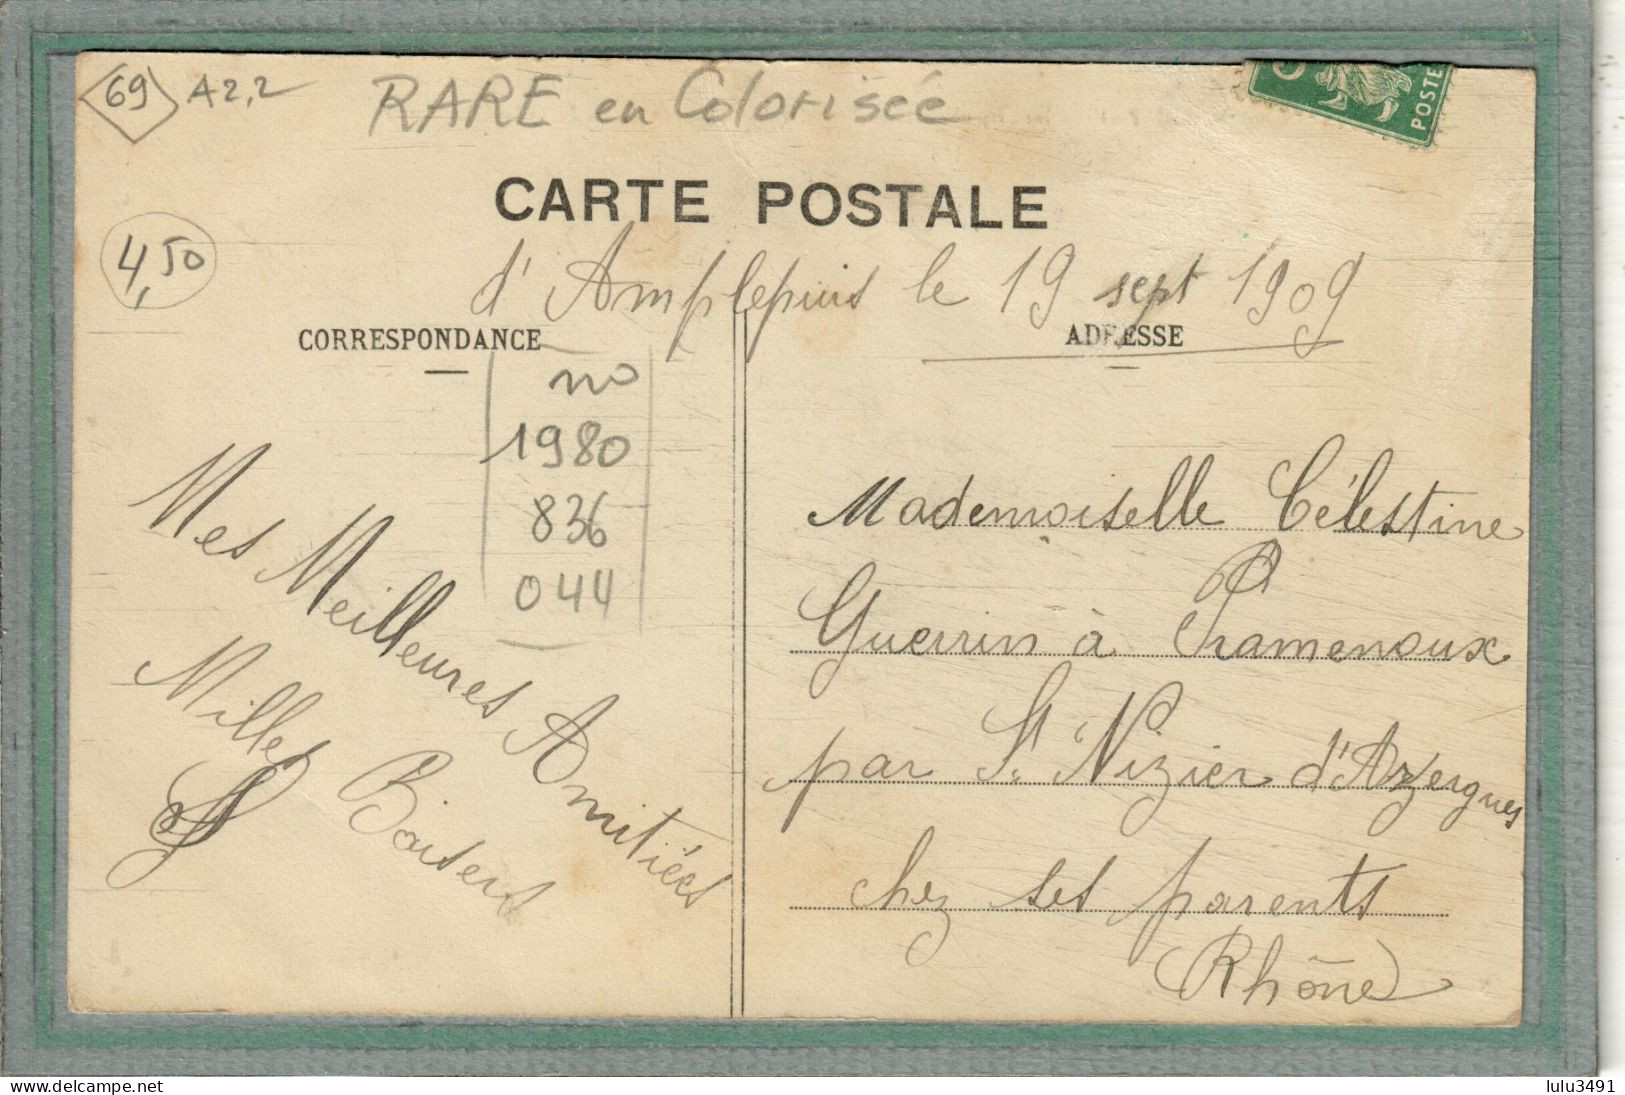 69 A2,2
RARE en Colorisée
POSTE
CARTE POSTALE
4,50
d'Amplepuis le 19 sept 1909
CORRESPONDANCE
ADRESSE
no
1980
836
044
Mes Meilleures Amitiées
Milles Baisers
Mademoiselle Célestine
Guerrin à Pramenoux
par St Nizier d'Azergues
chez ses parents
Rhône
lulu3491